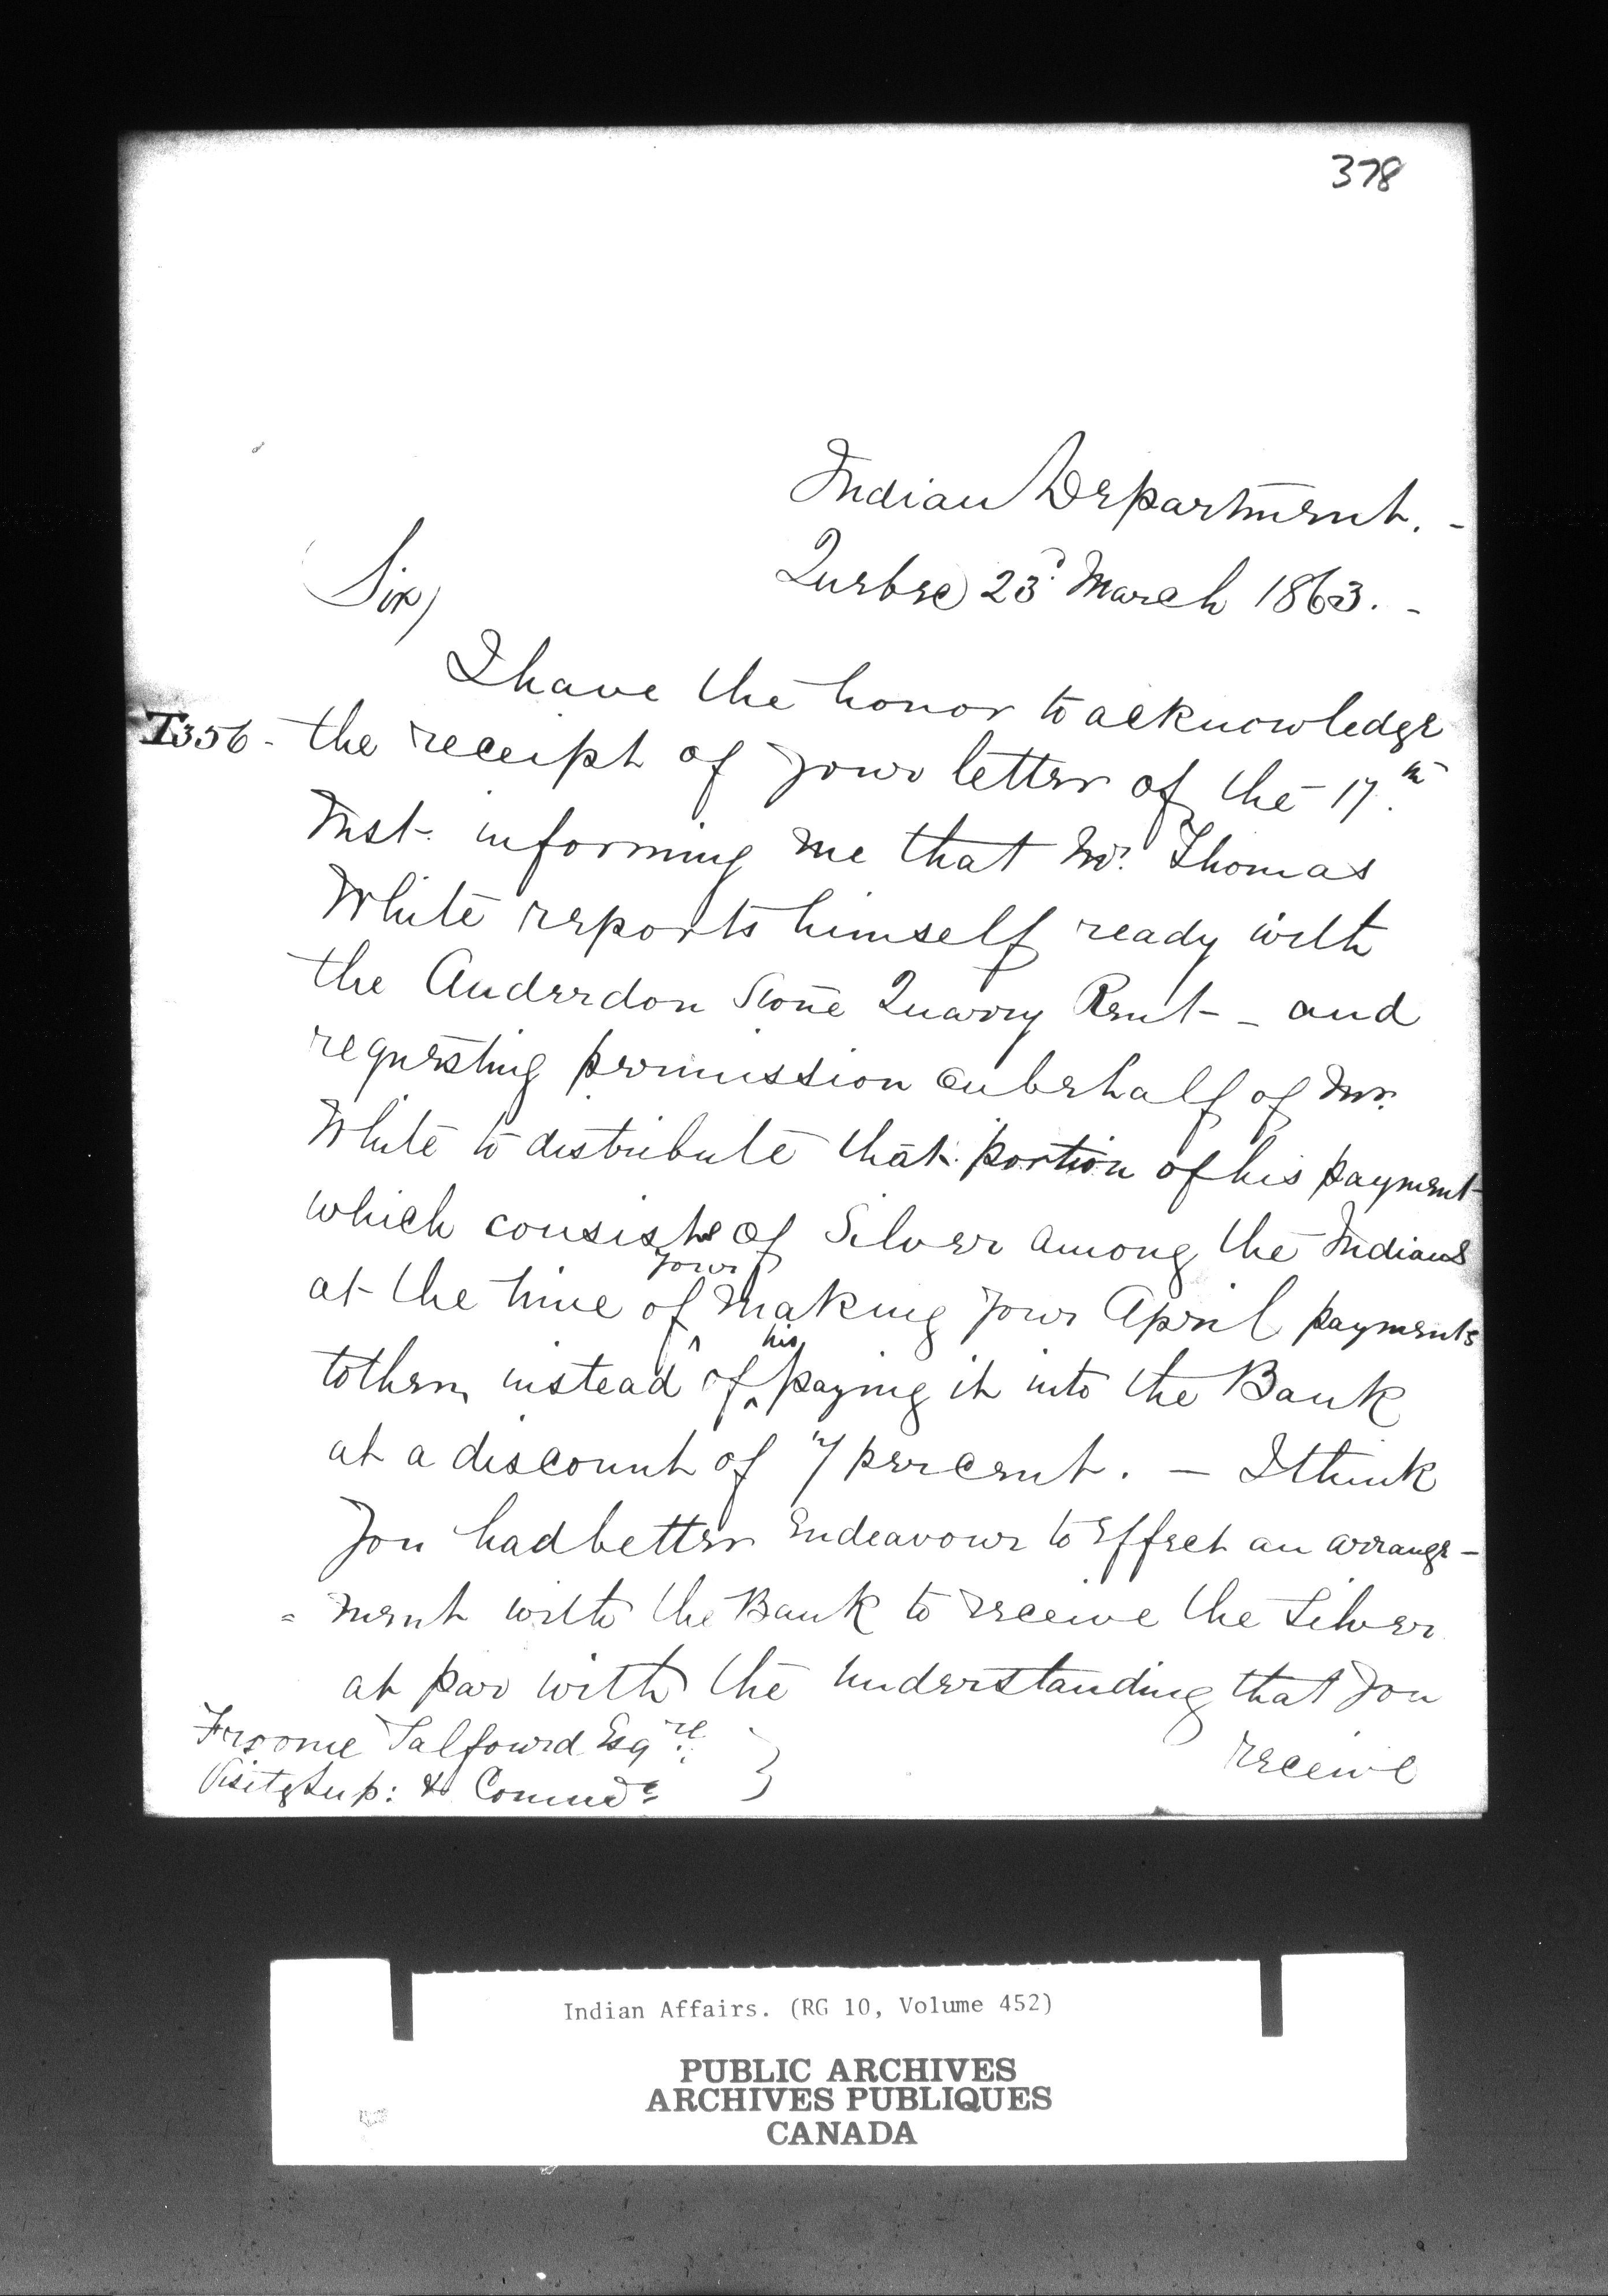 378
Indian Department. -
Quebec 23d. March 1863. -
Sir,
I have the honor to acknowledge
T356 - the receipt of your letter of the 17.th
Inst. informing me that Mr. Thomas
White reports himself ready with
the Anderdon Stone Quarry Rent - and
requesting permission on behalf of Mr.
White to distribute that portion of his payment
which consists of Silver among the Indians
at the time of your making your April payments
to them, instead of his paying it into the Bank
at a discount of 7 per cent. — I think
you had better endeavour to effect an arrange-
= ment with the Bank to receive the Silver
at par with the understanding that you
receive
Froome Talfourd Esqre.
Visitg Sup: &
Indian Affairs. (RG 10, Volume 452)
PUBLIC ARCHIVES
ARCHIVES PUBLIQUES
CANADA